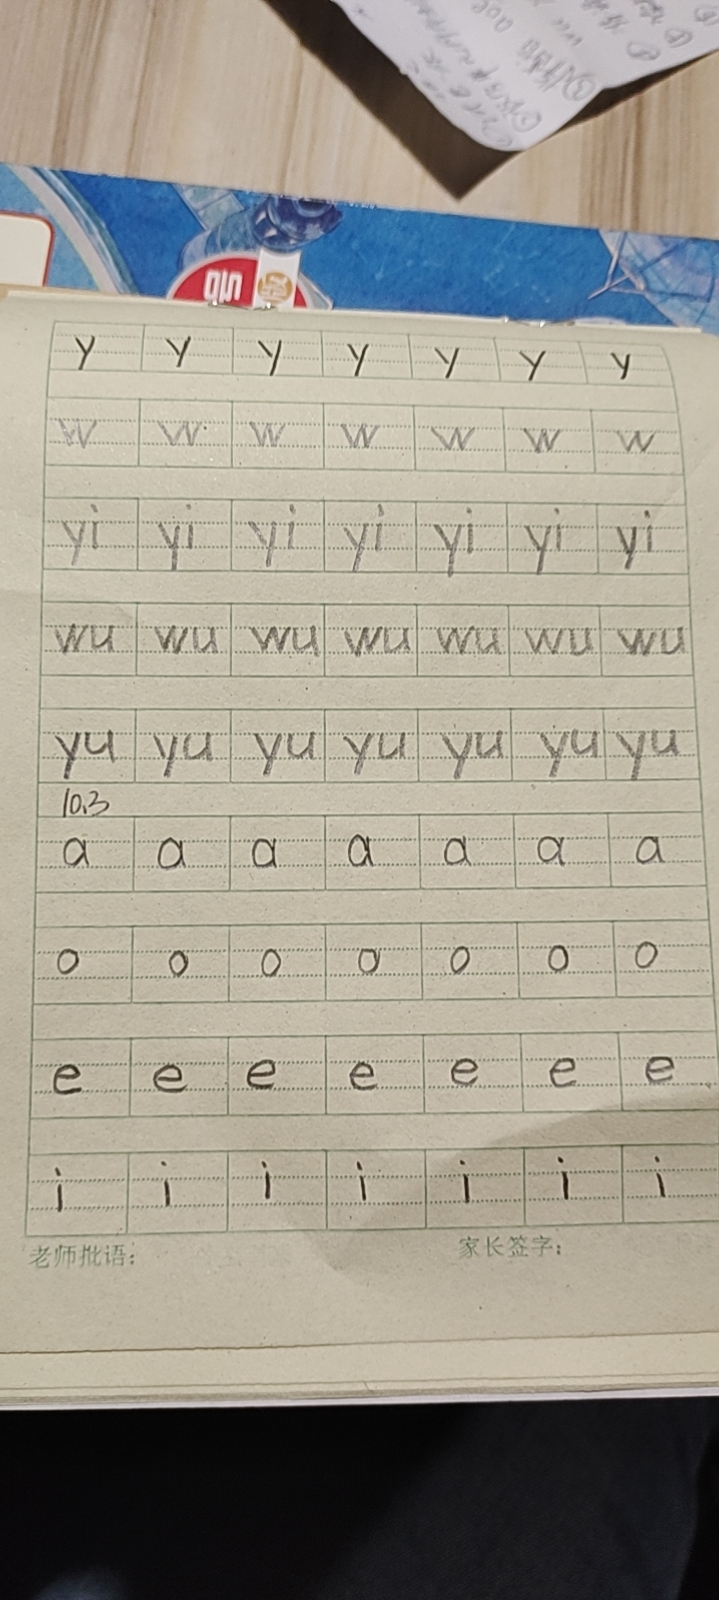 y y y y y y y
w w w w w w w
yi yi yi yi yi yi yi
wu wu wu wu wu wu wu
yu yu yu yu yu yu yu
10.3
a a a a a a a
o o o o o o o
e e e e e e e
i i i i i i i
老师批语: 家长签字: